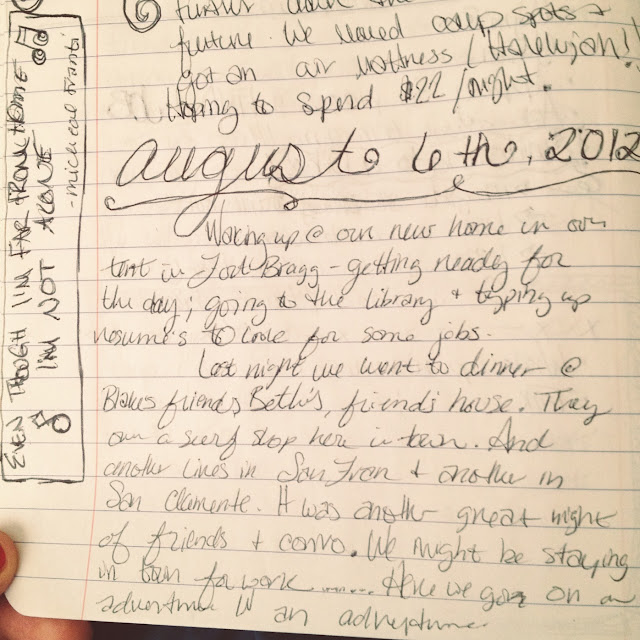 future. We moved camp spots +
got an air mattress (Hallelujah!!
Hoping to spend $22/night.
august 6th, 2012
Waking up @ our new home in our
tent in Fort Bragg - getting ready for
the day; going to the library + typing up
resumes to look for some jobs.
Last night we went to dinner @
Blakes friends Beth's, friends house. They
own a surf shop here in town. And
another lives in San Fran + another in
San Clemente. It was another great night
of friends + convo. We might be staying
in town for work....... Here we go on a
adventure an
EVEN THOUGH I'M FAR FROM HOME
I'M NOT ALONE
- micheal franti